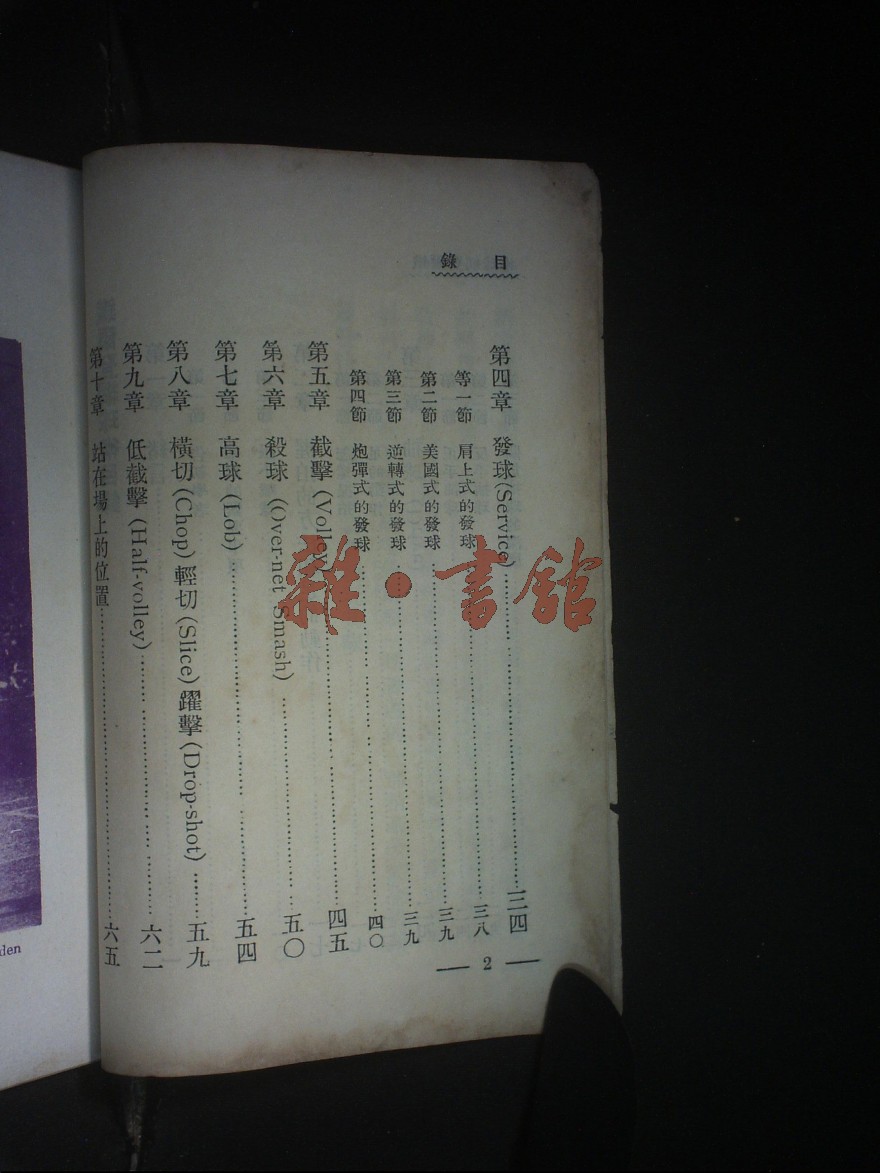 目錄
第四章 發球(Service)……三四
等一節 肩上式的發球……三八
第二節 美國式的發球……三九
第三節 逆轉式的發球……三九
第四節 炮彈式的發球……四〇
第五章 截擊(Volley)……四五
第六章 殺球(Over-net Smash)……五〇
第七章 高球(Lob)……五四
第八章 橫切(Chop)輕切(Slice)躍擊(Drop-shot)……五九
第九章 低截擊(Half-volley)……六二
第十章 站在場上的位置……六五
2
den
雜·書館